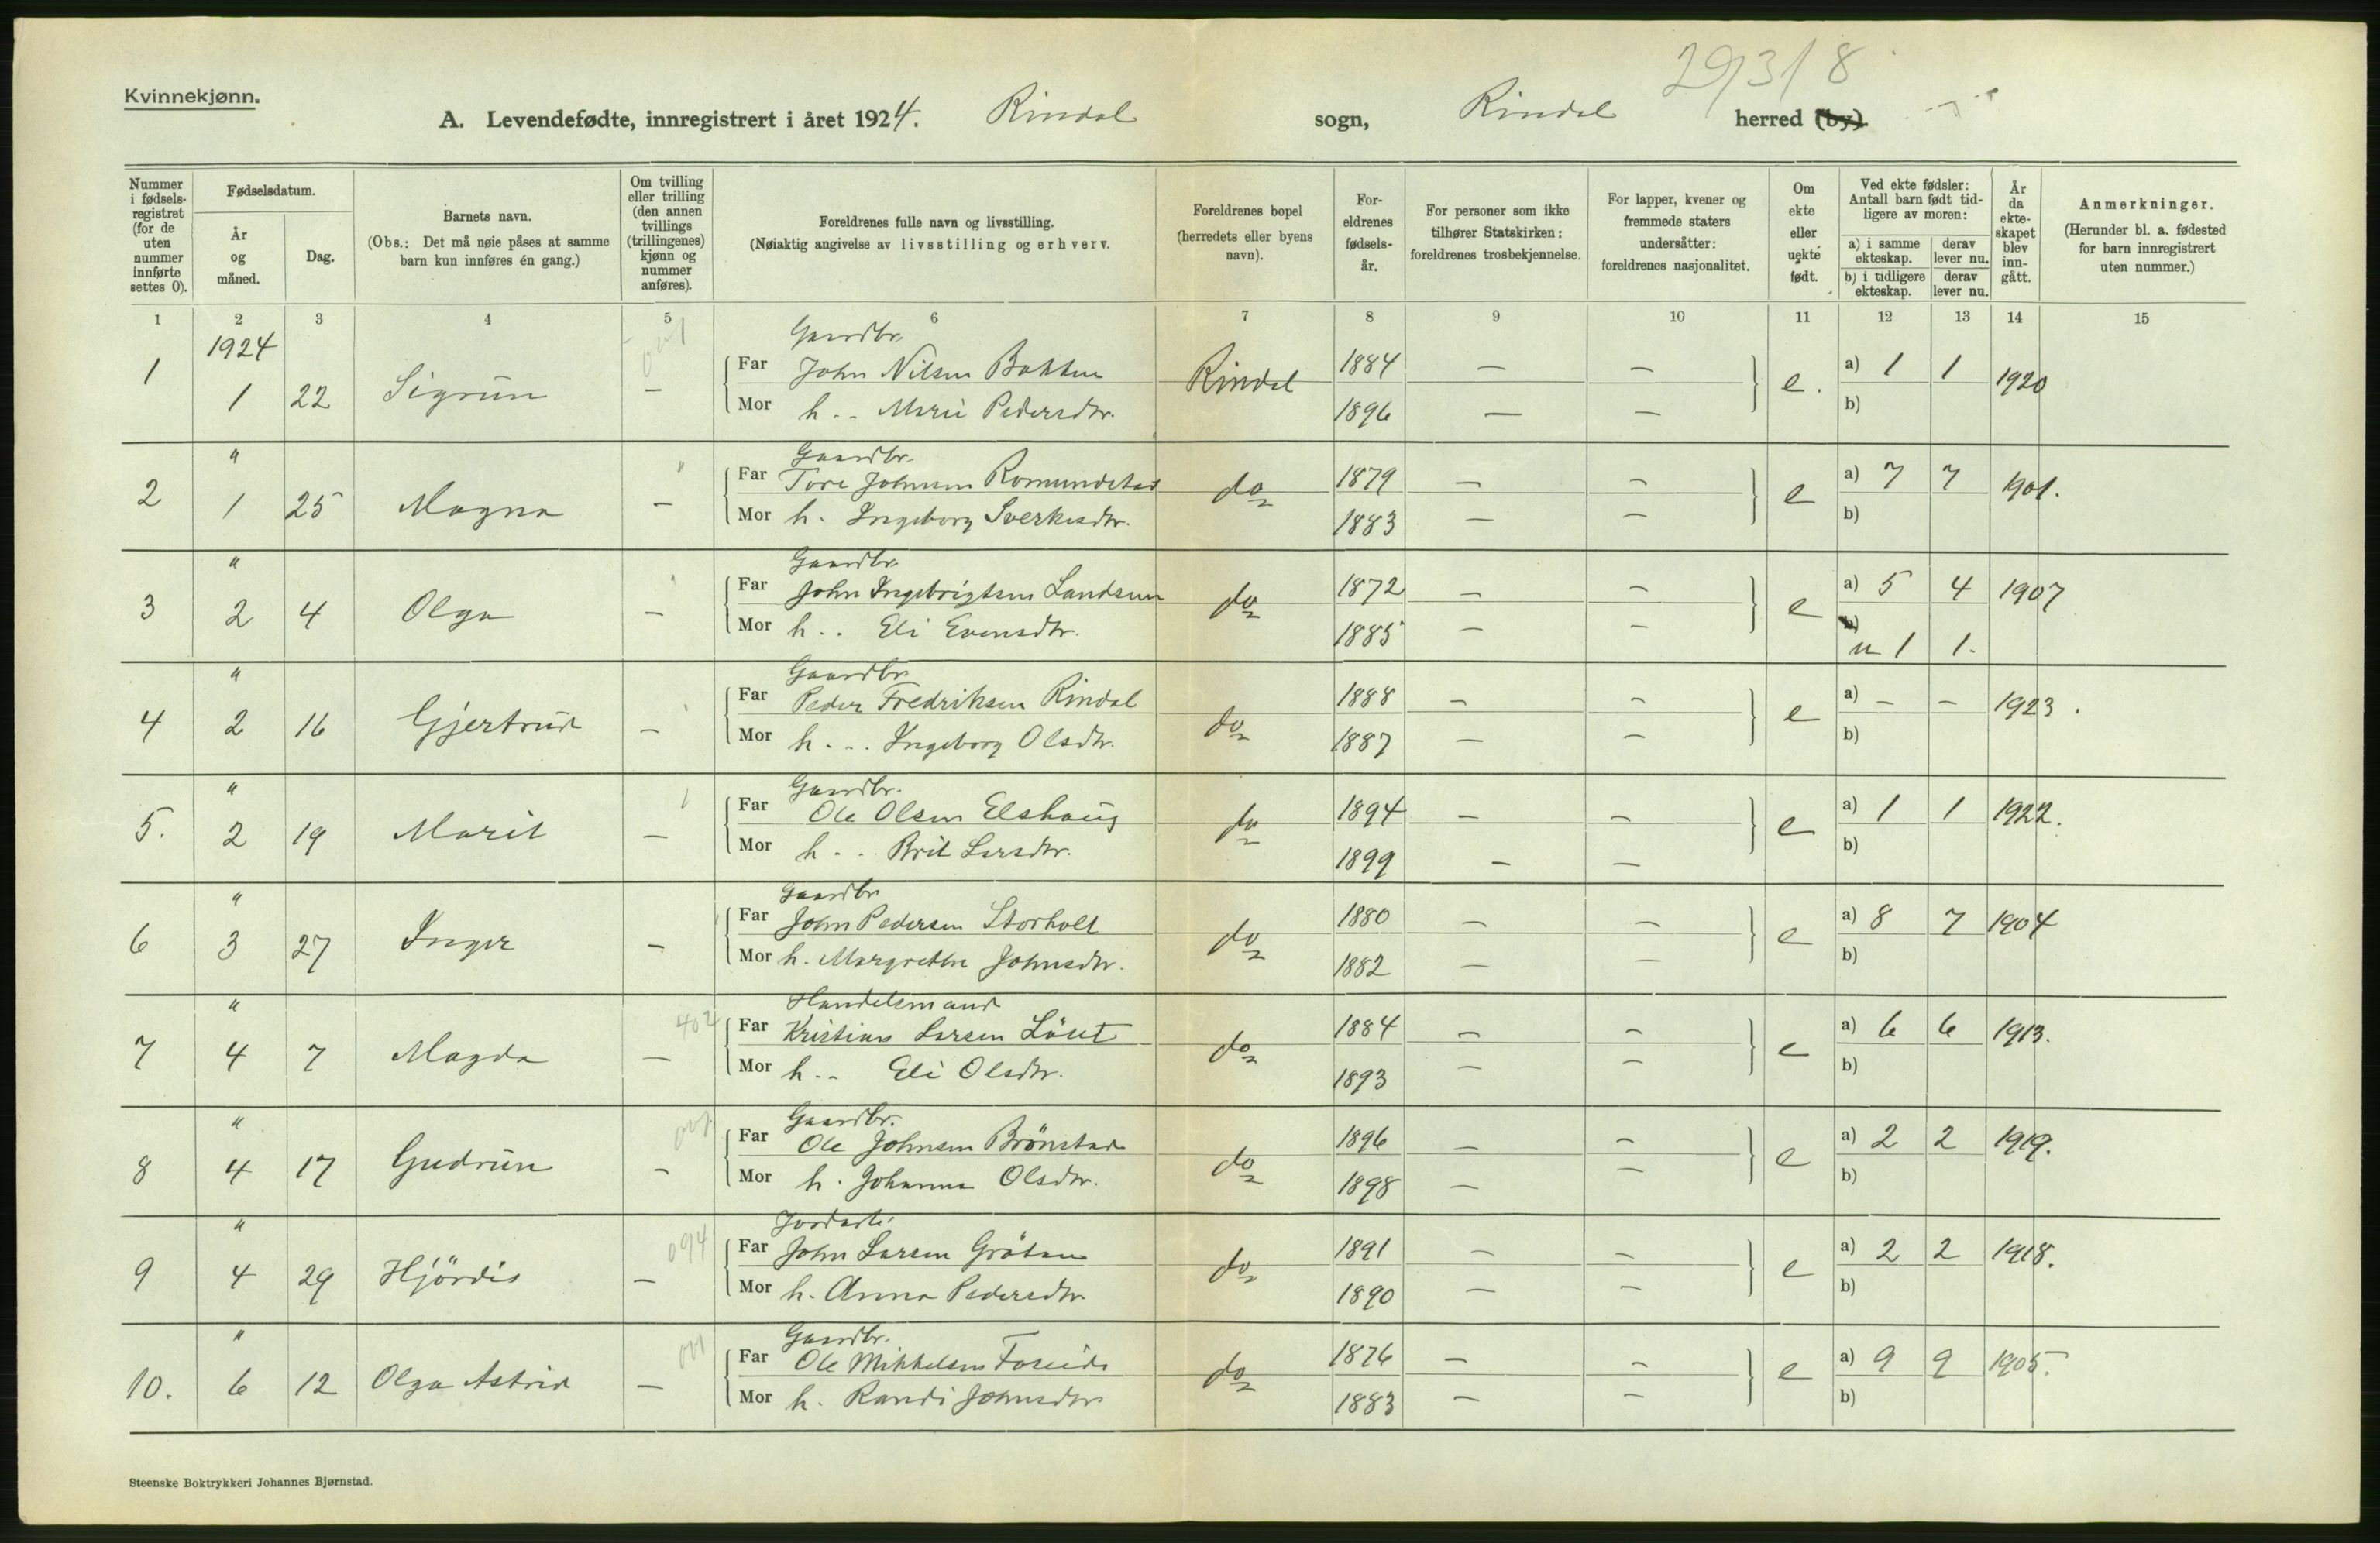 29/3/8
Kvinnekjønn.
A. Levendefødte, innregistrert i året 1924. Rindal sogn, Rindal herred (by).
Nummer i fødsels-registret (for de uten nummer innførte settes 0).
Fødselsdatum.
År og måned.
Dag.
Barnets navn.
(Obs.: Det må nøie påses at samme barn kun innføres én gang.)
Om tvilling eller trilling (den annen tvillings (trillingenes) kjønn og nummer anføres).
Foreldrenes fulle navn og livsstilling.
(Nøiaktig angivelse av livsstilling og erhverv.
Foreldrenes bopel (herredets eller byens navn).
For-eldrenes fødsels-år.
For personer som ikke tilhører Statskirken: foreldrenes trosbekjennelse.
For lapper, kvener og fremmede staters undersåtter: foreldrenes nasjonalitet.
Om ekte eller uekte født.
Ved ekte fødsler: Antall barn født tid-ligere av moren:
a) i samme ekteskap. derav lever nu.
b) i tidligere ekteskap. derav lever nu.
År da ekte-skapet blev inn-gått.
Anmerkninger.
(Herunder bl. a. fødested for barn innregistrert uten nummer.)
1 2 3 4 5 6 7 8 9 10 11 12 13 14 15
1924
Gaardbr.
1 1 22 Sigrun — Far John Nilsen Bakken Rindal 1884 — — e. a) 1 1 1920
Mor h. .. Marie Pedersdtr. 1896 — — b)
" Gaardbr.
2 1 25 Magna — Far Tore Johnsen Romundstad do 1879 — — e a) 7 7 1901.
Mor h. Ingeborg Sverkesdtr. 1883 — — b)
" Gaardbr.
3 2 4 Olga — Far John Ingebrigtsen Landsem do 1872 — — e a) 5 4 1907
Mor h. .. Eli Evensdtr. 1885 — — b)
u 1 1.
" Gaardbr.
4 2 16 Gjertrud — Far Peder Fredriksen Rindal do 1888 — — e a) — — 1923.
Mor h. .. Ingeborg Olsdtr. 1887 — — b)
" Gaardbr.
5. 2 19 Marit — Far Ole Olsen Elshaug do 1894 — — e a) 1 1 1922.
Mor h. .. Brit Larsdtr. 1899 — — b)
" Gaardbr
6 3 27 Inger — Far John Pedersen Storholt do 1880 — — e a) 8 7 1904
Mor h. Margrethe Johnsdtr. 1882 — — b)
" Handelsmand
7 4 7 Magda — 402 Far Kristian Larsen Löset do 1884 — — e a) 6 6 1913.
Mor h. .. Eli Olsdtr. 1893 — — b)
" Gaardbr.
8 4 17 Gudrun — Far Ole Johnsen Brönstad do 1896 — — e a) 2 2 1919.
Mor h. Johanna Olsdtr. 1898 — — b)
"
9 4 29 Hjördis — 094 Far John Larsen Gröten do 1891 — — e a) 2 2 1918.
Mor h. Anna Pedersdtr. 1890 — — b)
" Gaardbr.
10. 6 12 Olga Astrid — 001 Far Ole Mikkelsen do 1876 — — e a) 9 9 1905.
Mor h. Randi Johnsdtr 1883 — — b)
Steenske Boktrykkeri Johannes Bjørnstad.